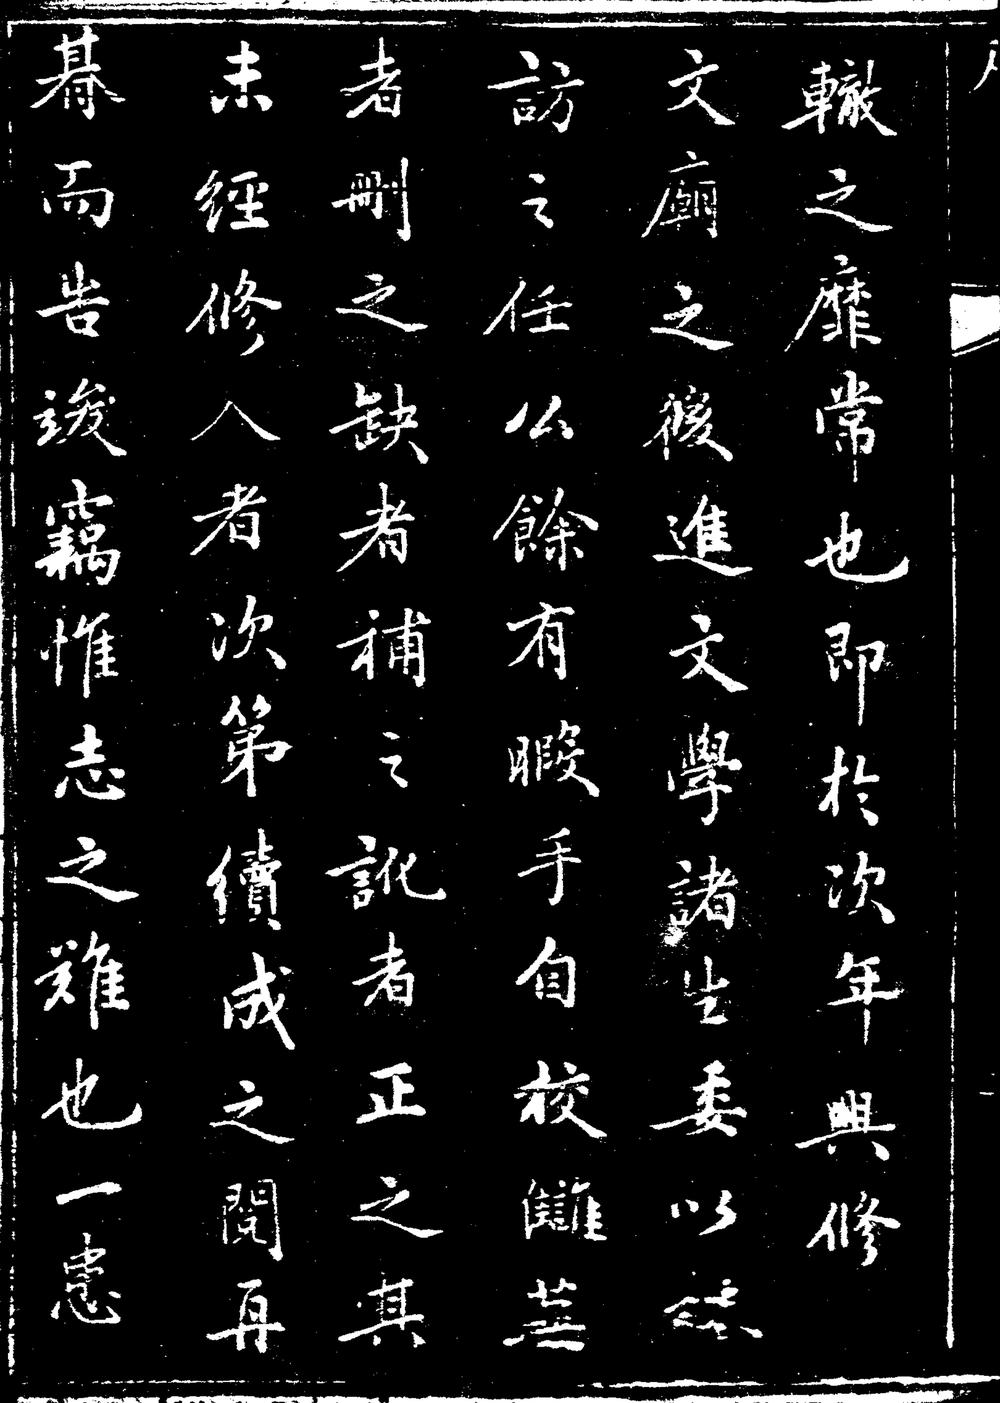 轍之靡常也即於次年興修
文廟之後進文學諸生委以誌
訪之任公餘有暇手自校讎蕪
者刪之缺者補之訛者正之其
未經修入者次第續成之閱再
朞而告竣竊惟志之難也一患